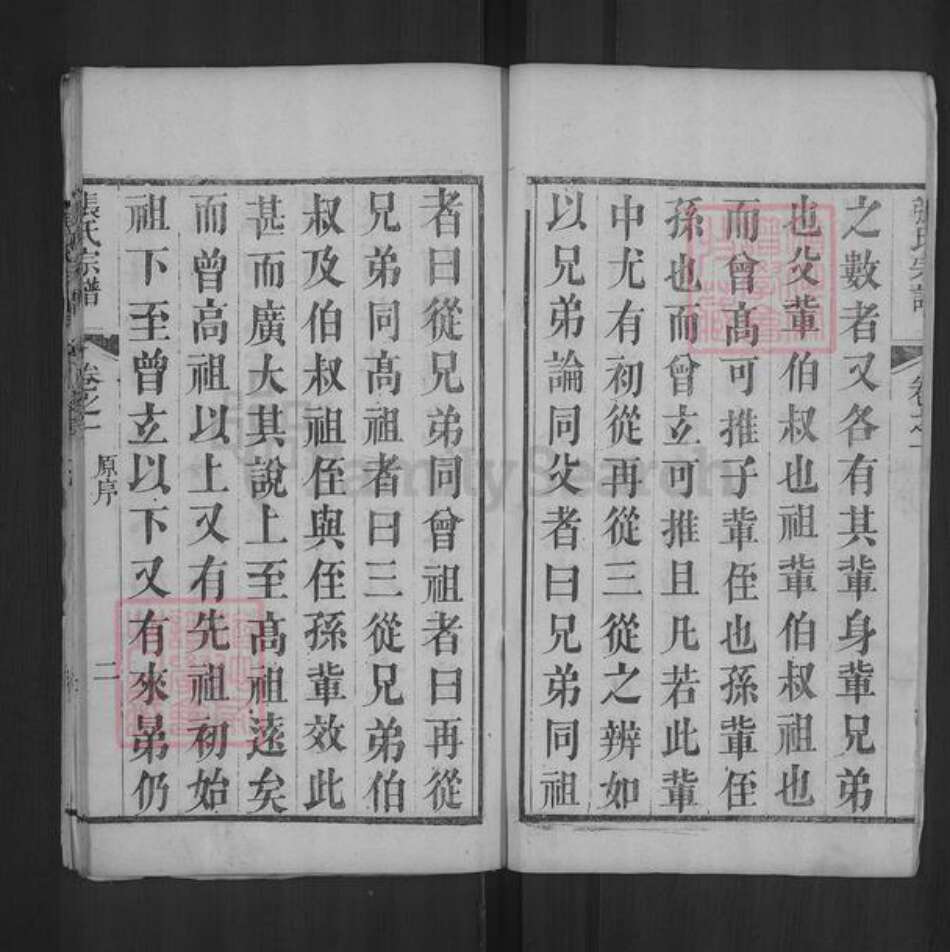 之數者又各有其輩身輩兄弟
也父輩伯叔也祖輩伯叔祖也
而曾髙可推子輩侄也孫輩侄
孫也而曾玄可推且凡若此輩
中尤有初從再從三從之辨如
以兄弟論同父者曰兄弟同祖
者曰從兄弟同曾祖者曰再從
兄弟同髙祖者曰三從兄弟伯
叔及伯叔祖侄與侄孫輩效此
甚而廣大其說上至高祖遠矣
而曾高祖以上又有先祖初始
祖下至曾玄以下又有來晜仍
張氏宗譜
卷之一
原序
二
FamilySearch